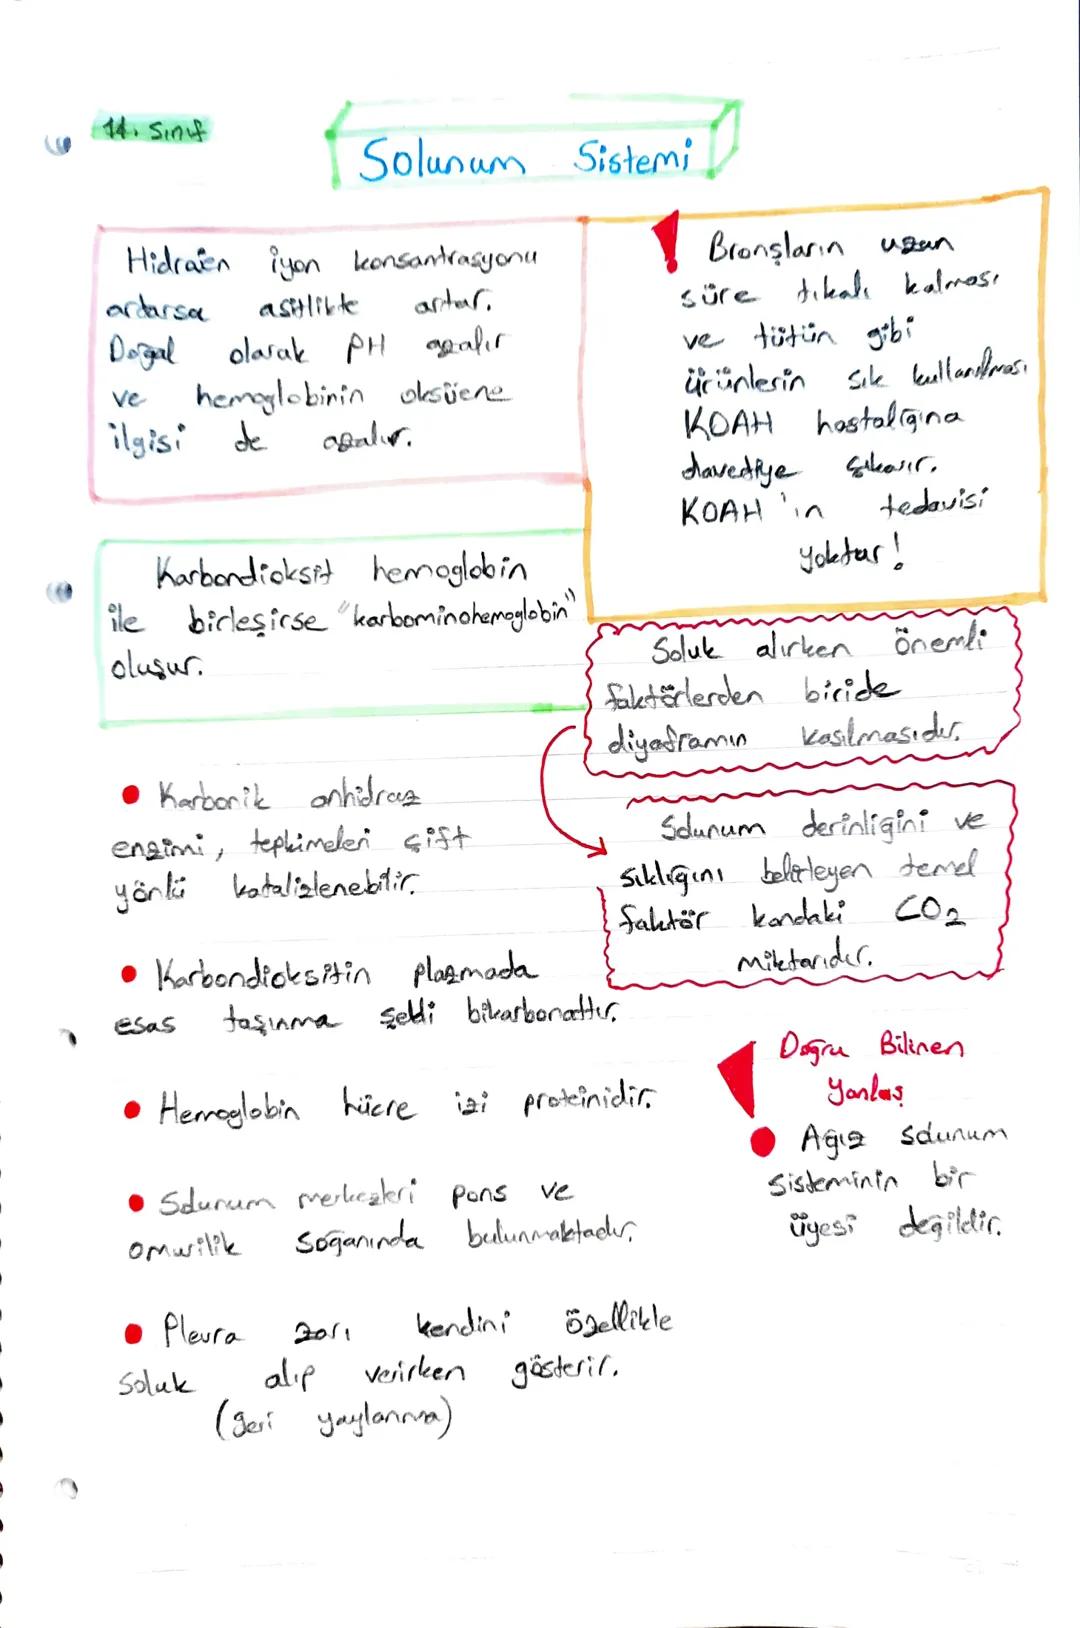 11. Sınıf
Solunum Sistemi
Hidrojen iyon konsantrasyonu
artarsa asitlikte artar.
Doğal olarak PH azalır
ve hemoglobinin oksijene
ilgisi de azalır.
Bronşların uzun
süre tıkalı kalması
ve tütün gibi
ürünlerin sık kullanılması
KOAH hastalığına
davetiye çıkarır.
KOAH'ın tedavisi
yoktur!
Karbondioksit hemoglobin
ile birleşirse "karbominohemoglobin"
oluşur.
Soluk alırken önemli
faktörlerden biride
diyaframın kasılmasıdır.
Solunum derinliğini ve
sıklığını belirleyen temel
faktör kandaki CO₂
miktarıdır.
• Karbonik anhidraz
enzimi, tepkimeleri çift
yönlü katalizlenebilir.
• Karbondioksitin plazmada
esas taşınma şekli bikarbonattır.
• Hemoglobin hücre içi proteinidir.
• Solunum merkezleri pons ve
omurilik soğanında bulunmaktadır.
• Plevra zarı kendini özellikle
soluk alıp verirken gösterir.
(geri yaylanma)
Doğru Bilinen
Yanlış
• Ağız solunum
sisteminin bir
üyesi değildir.